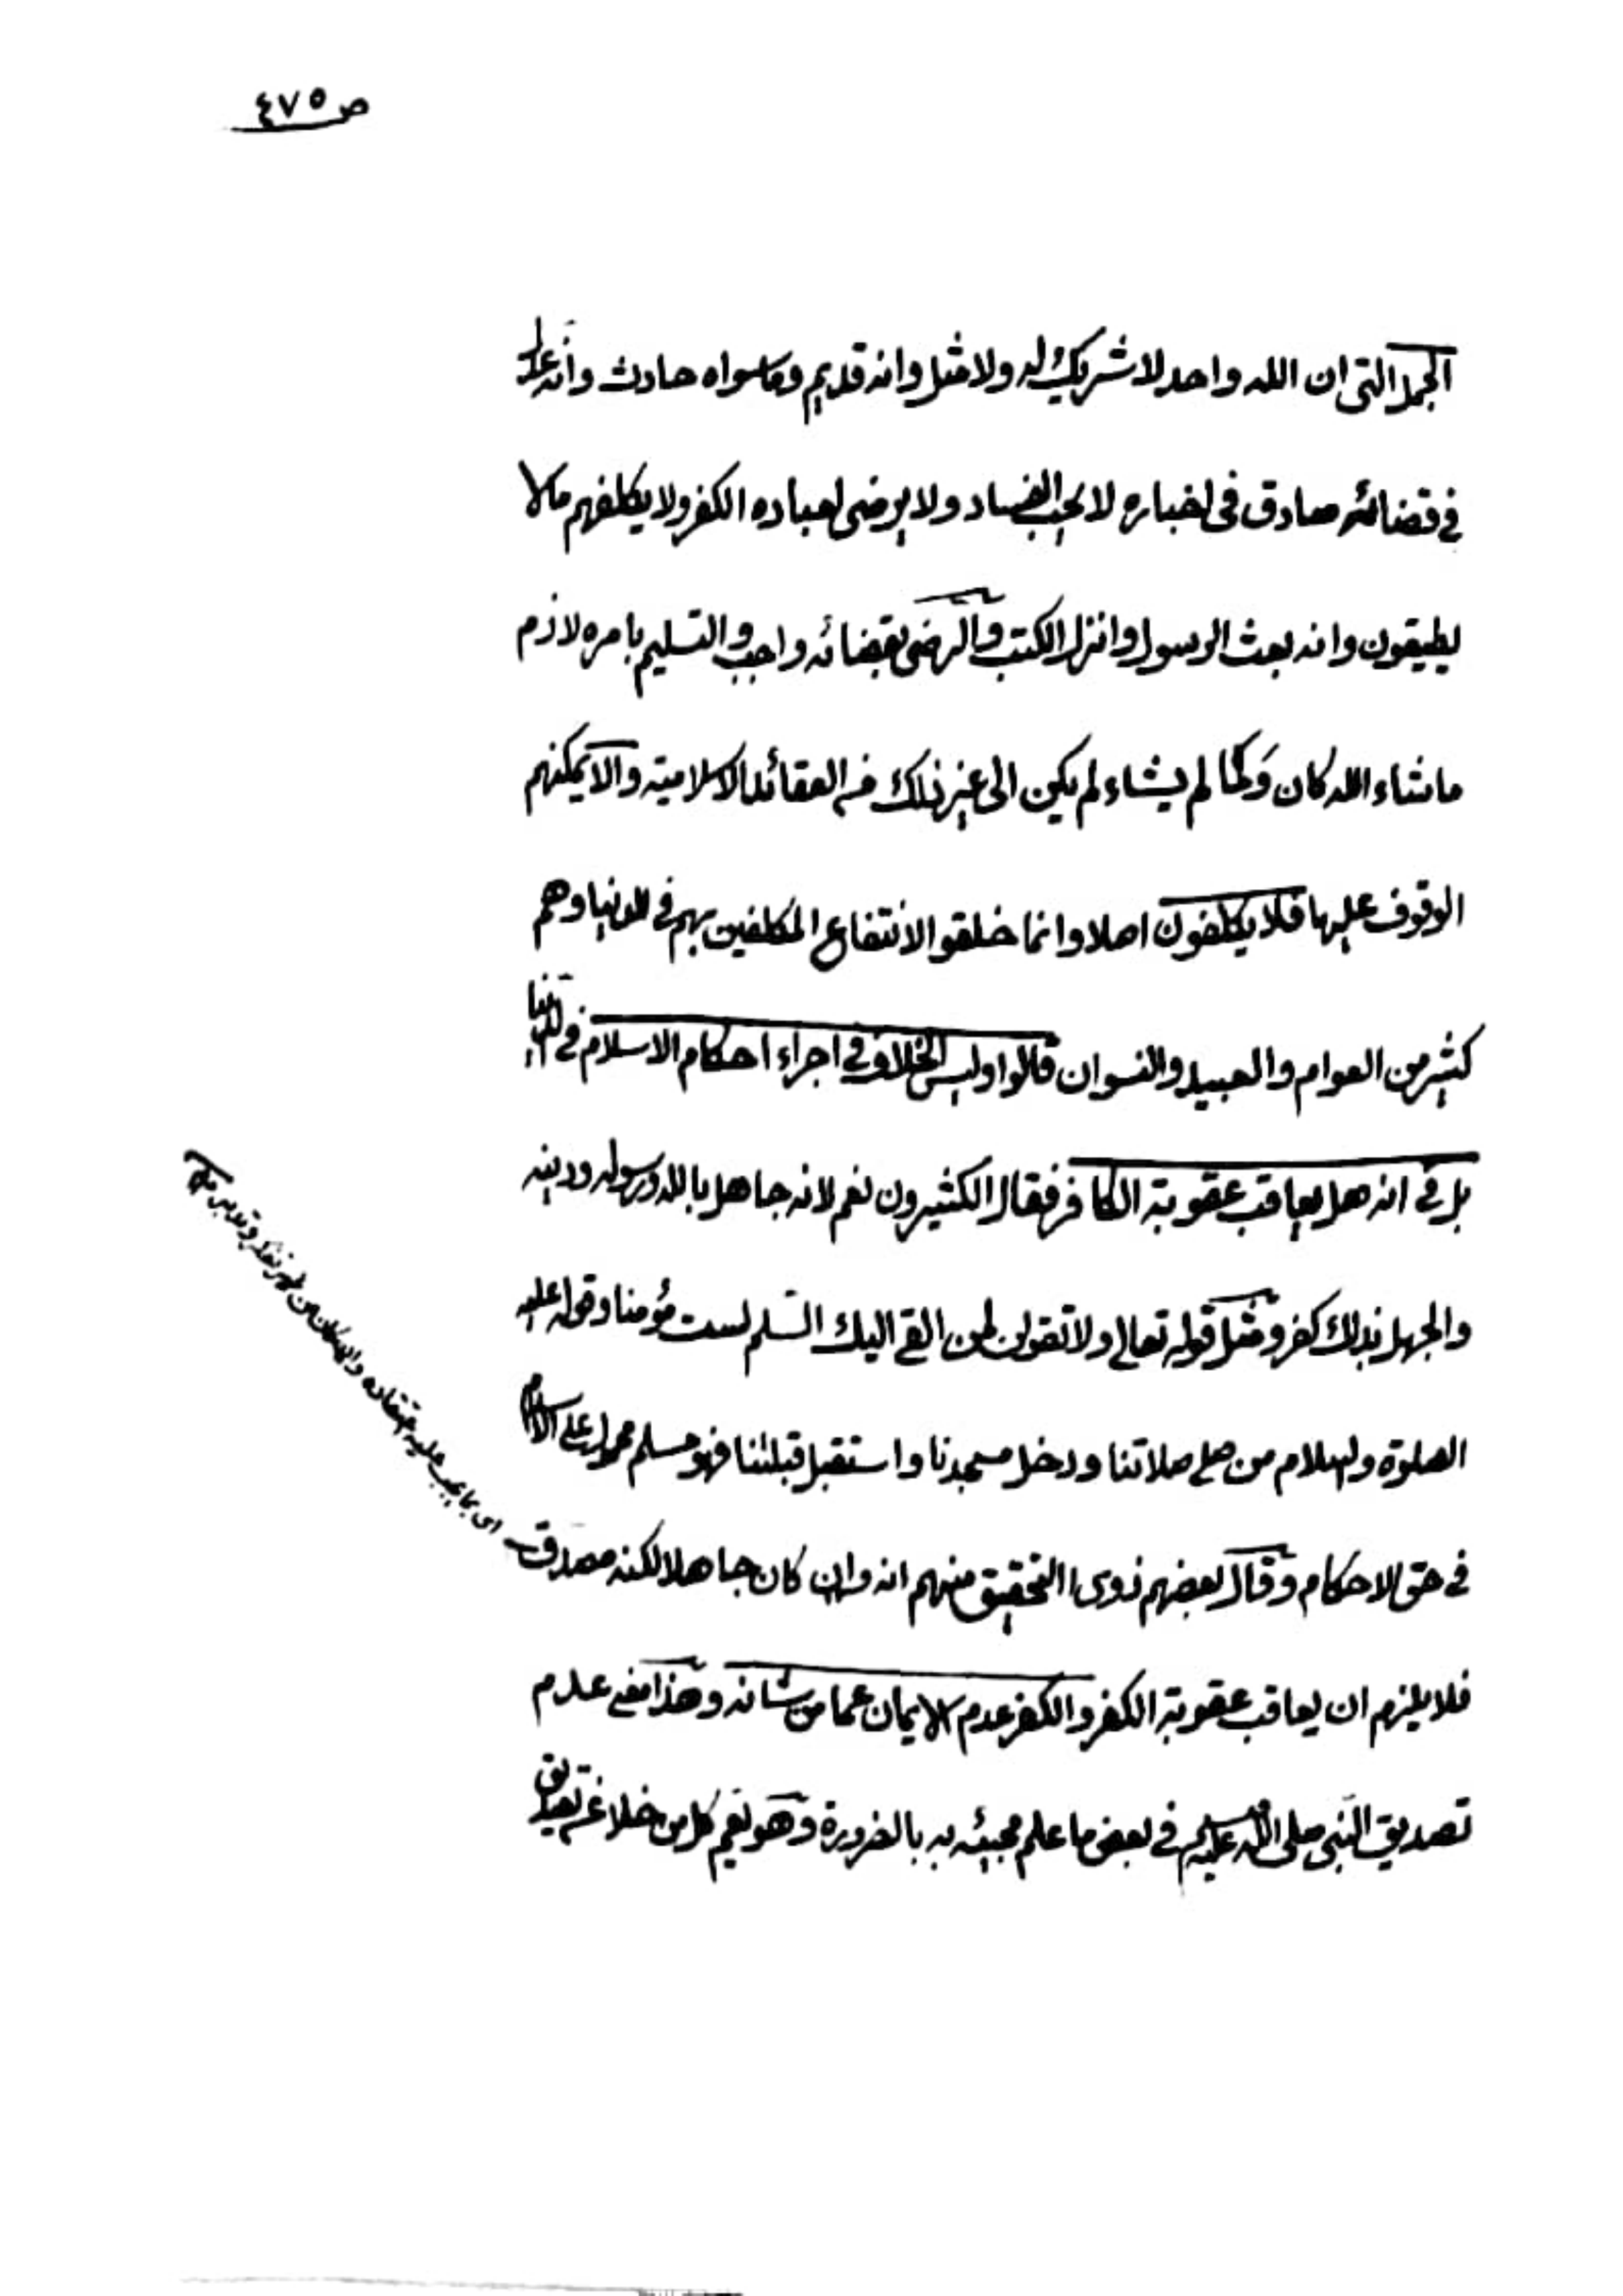 ص ٤٧٥
الجمل التى ان الله واحد لا شريك له ولا مثل وانه قديم وما سواه حادث وانه عدل
فى قضائه صادق فى اخباره لا يحب الفساد ولا يرضى لعباده الكفر ولا يكلفهم ما لا
يطيقون وانه بعث الرسول وانزل الكتب والرضى بقضائه واجب والتسليم بامره لازم
ما شاء الله كان وكما لم يشاء لم يكن الى غير ذلك من العقائد الاسلامية والا يمكنهم
الوقوف عليها فلا يكلفون اصلا وانما خلقوا الانتفاع المكلفين بهم فى الدنيا وهم
كثير من العوام والعبيد والنسوان قالوا وليس الخلاف فى اجراء احكام الاسلام فى الدنيا
بل فى انه هل يعاقب عقوبة الكافر فقال الكثيرون نعم لانه جاهل بالله ورسوله ودينه
والجهل بذلك كفر ومثل قوله تعالى ولا تقولن لمن القى اليك السلم لست مؤمنا وقوله عليه
الصلوة والسلام من صلى صلاتنا ودخل مسجدنا واستقبل قبلتنا فهو مسلم محمول على الاسلام
فى حق الاحكام وقال بعضهم ذوى التحقيق منهم انه وان كان جاهلا لكنه مصدق
اى بما يجب عليه اعتقاده وان كان من غير نظر وتدبر
فلا يلزم ان يعاقب عقوبة الكفر والكفر عدم الايمان عما من شانه وهذا معنى عدم
تصديق النبى صلى الله عليه وسلم فى بعض ما علم مجيئه به بالضرورة وهو نعم كل من خلا عن تصديق